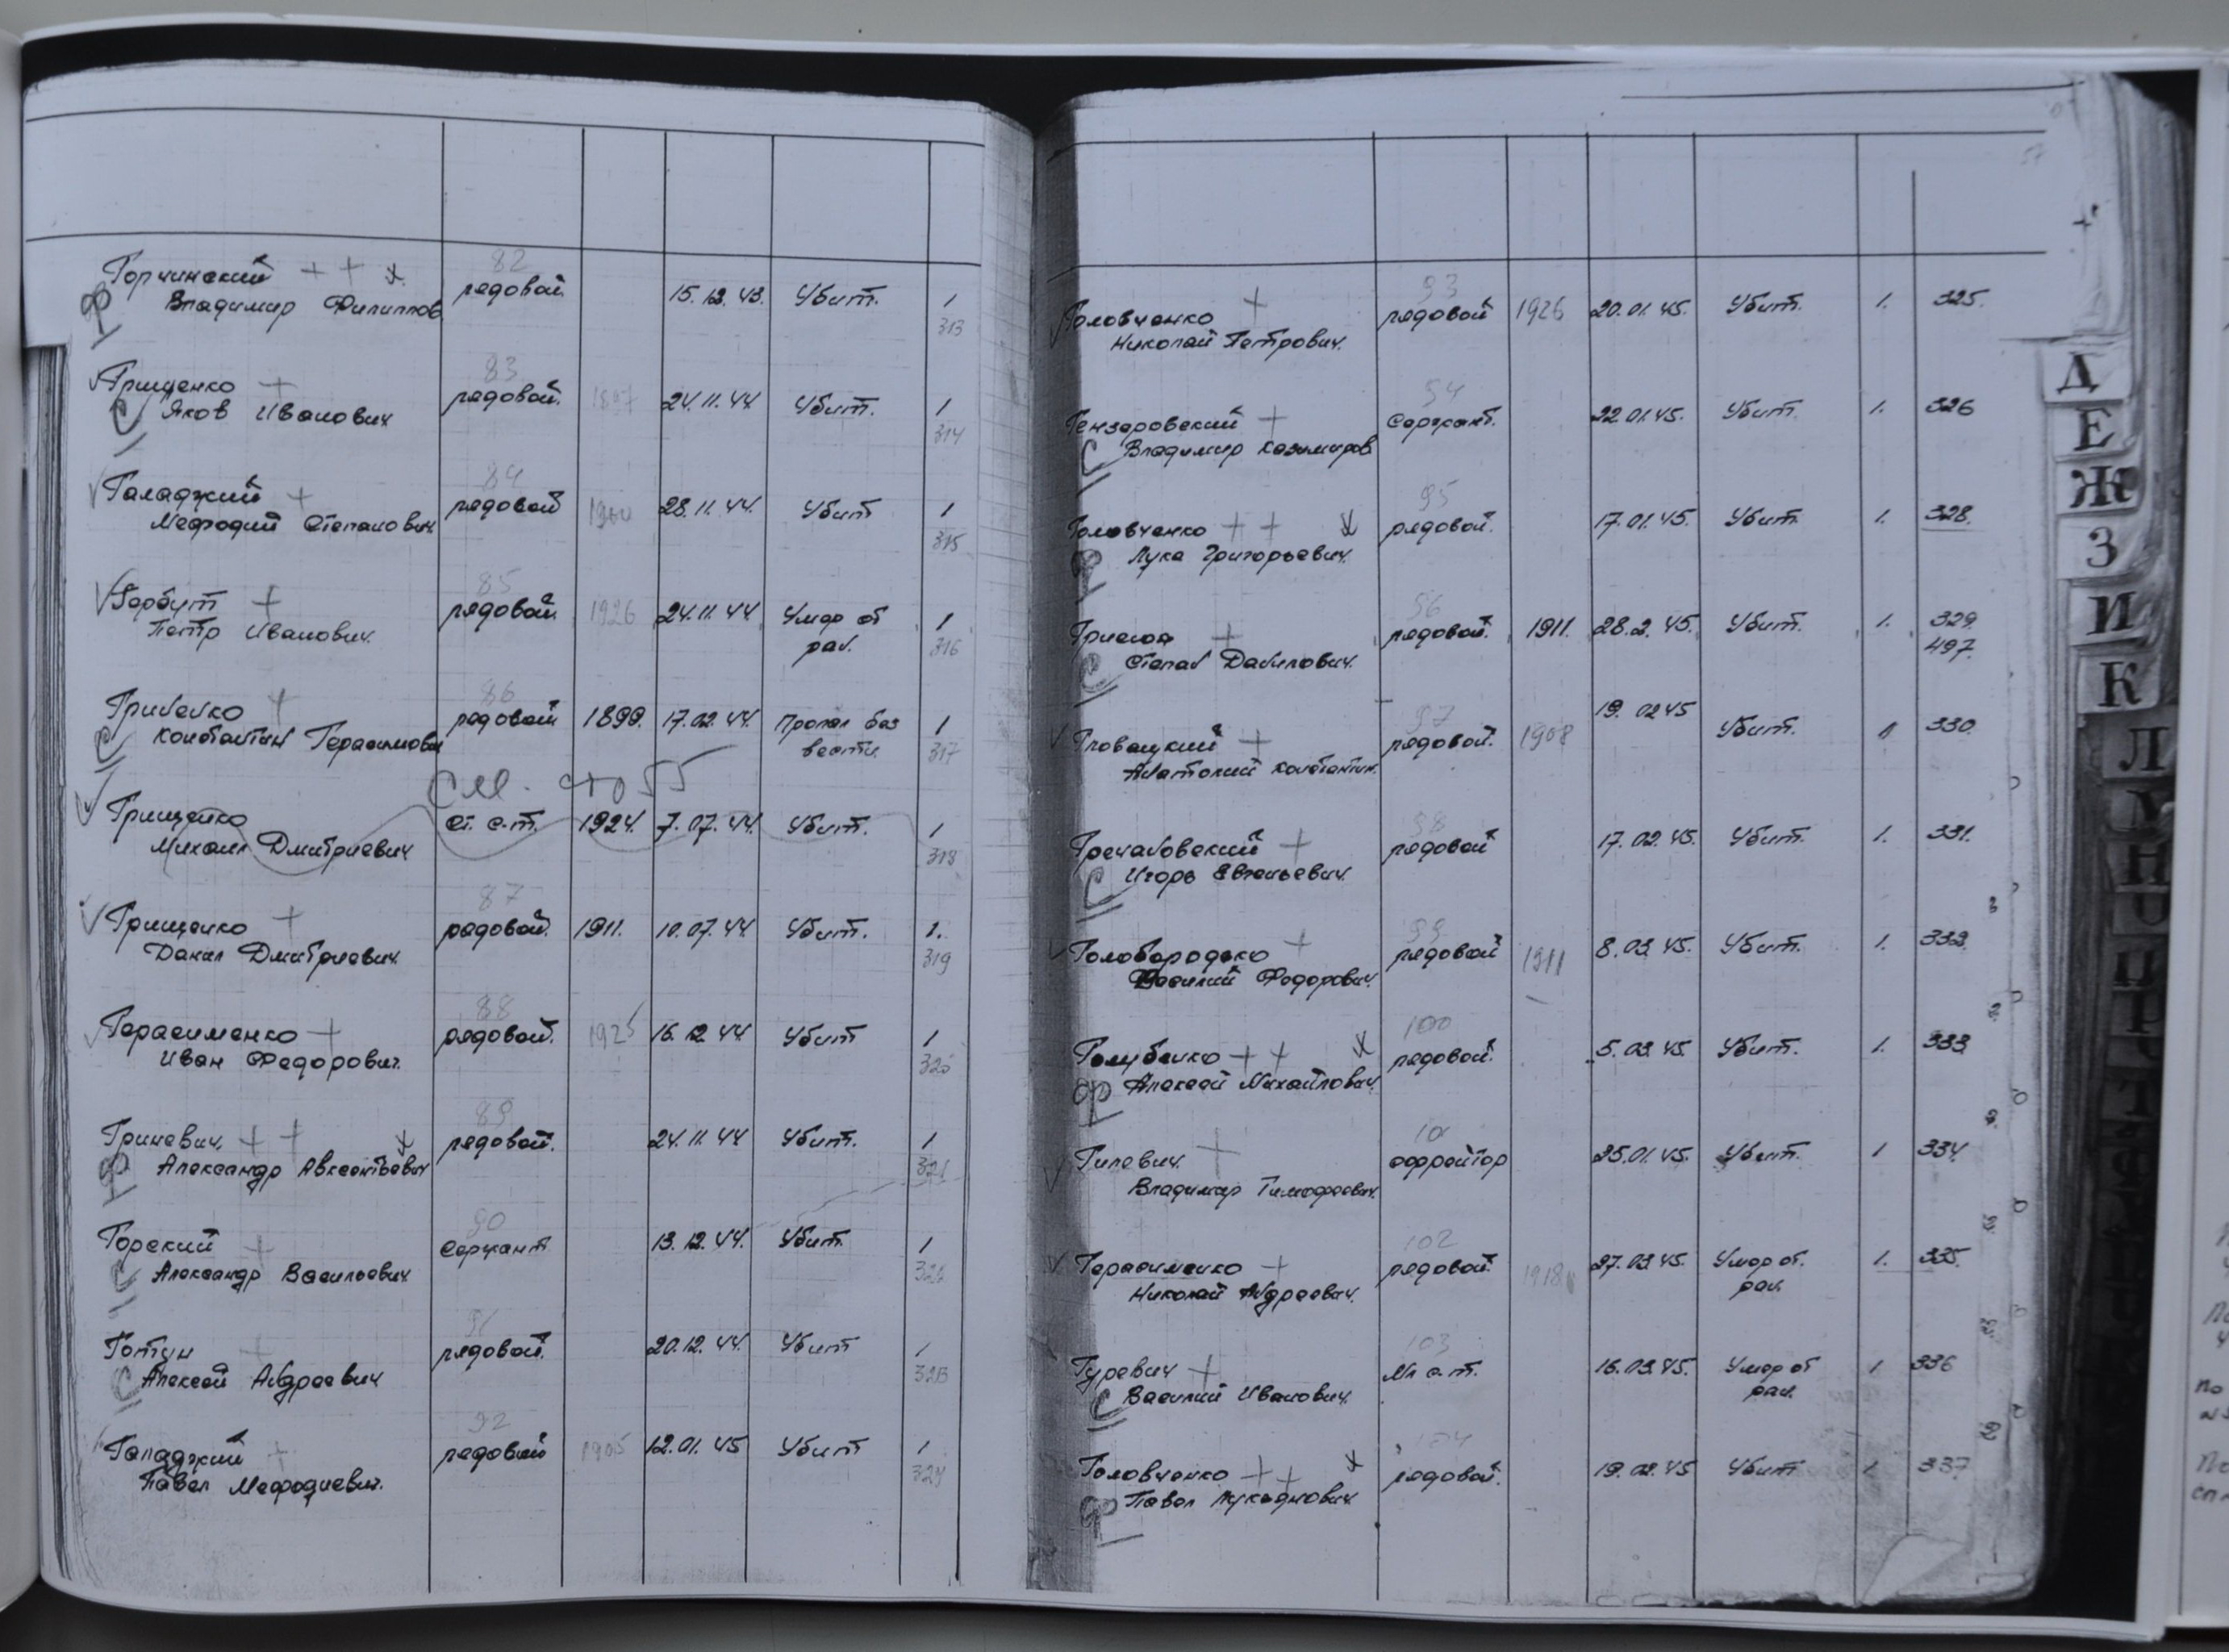 82
Горчинский + + x
Владимир Филиппов.
Ф
рядовой
15.12.43.
Убит.
1
313
83
Грищенко +
Яков Иванович
С
рядовой.
1897
24.11.44.
Убит.
1
314
84
Галаджий +
Мефодий Степанович
рядовой
28.11.44.
Убит
1
315
85
Гербут +
Петр Иванович.
рядовой.
1926
24.11.44.
Умер от
ран.
1
316
86
Гриненко +
Константин Герасимович
С
рядовой
1899.
17.02.44.
Пропал без
вести.
1
317
см.
Грищенко
Михаил Дмитриевич
ст. с-т.
1924.
7.07.44.
Убит.
1
318
87
Грищенко +
Данил Дмитриевич.
рядовой.
1911.
10.07.44.
Убит.
1.
319
88
Герасименко +
Иван Федорович.
рядовой.
1925
16.12.44.
Убит
1
320
89
Гриневич. + + x
Александр Авксентьевич
Ф
рядовой.
24.11.44
Убит.
1
321
90
Горский +
Александр Васильевич
С
Сержант
13.12.44.
Убит.
1
322
91
Готун +
Алексей Андреевич
С
рядовой.
20.12.44.
Убит
1
323
92
Галаджий +
Павел Мефодиевич.
рядовой
1905
12.01.45
Убит
1
324
57
93
Головченко +
Николай Петрович.
рядовой
1926
20.01.45.
Убит.
1.
325.
94
Гензеровский +
Владимир Казимиров.
С
Сержант.
22.01.45.
Убит.
1.
326
95
Головченко + + x
Лука Григорьевич.
Ф
рядовой.
17.01.45.
Убит.
1.
328.
96
+
Степан Данилович.
С
рядовой.
1911.
28.2.45.
Убит.
1.
329.
497.
97
Гловацкий +
Анатолий Константин.
рядовой.
1908
19.02 45
Убит.
1
330.
98
Гречановский +
Игорь Евгеньевич.
С
рядовой
17.02.45.
Убит.
1.
331.
99
Голобородько +
Василий Федорович.
рядовой
1911
8.03.45.
Убит.
1.
332.
100
Голубенко + + x
Алексей Михайлович.
Ф
рядовой.
5.03.45.
Убит.
1.
333.
101
Гилевич. +
Владимир Тимофеевич.
ефрейтор
25.01.45.
Убит.
1
334.
102
Герасименко +
Николай Андреевич.
рядовой.
1918
27.03.45.
Умер от.
ран.
1.
335.
103
Гуревич +
Василий Иванович.
С
Мл с-т.
16.03.45.
Умер от
ран.
1
336
104
Головченко + + x
Павел Лукьянович.
Ф
рядовой.
19.02.45
Убит
1
337
Д
Е
Ж
З
И
К
Л